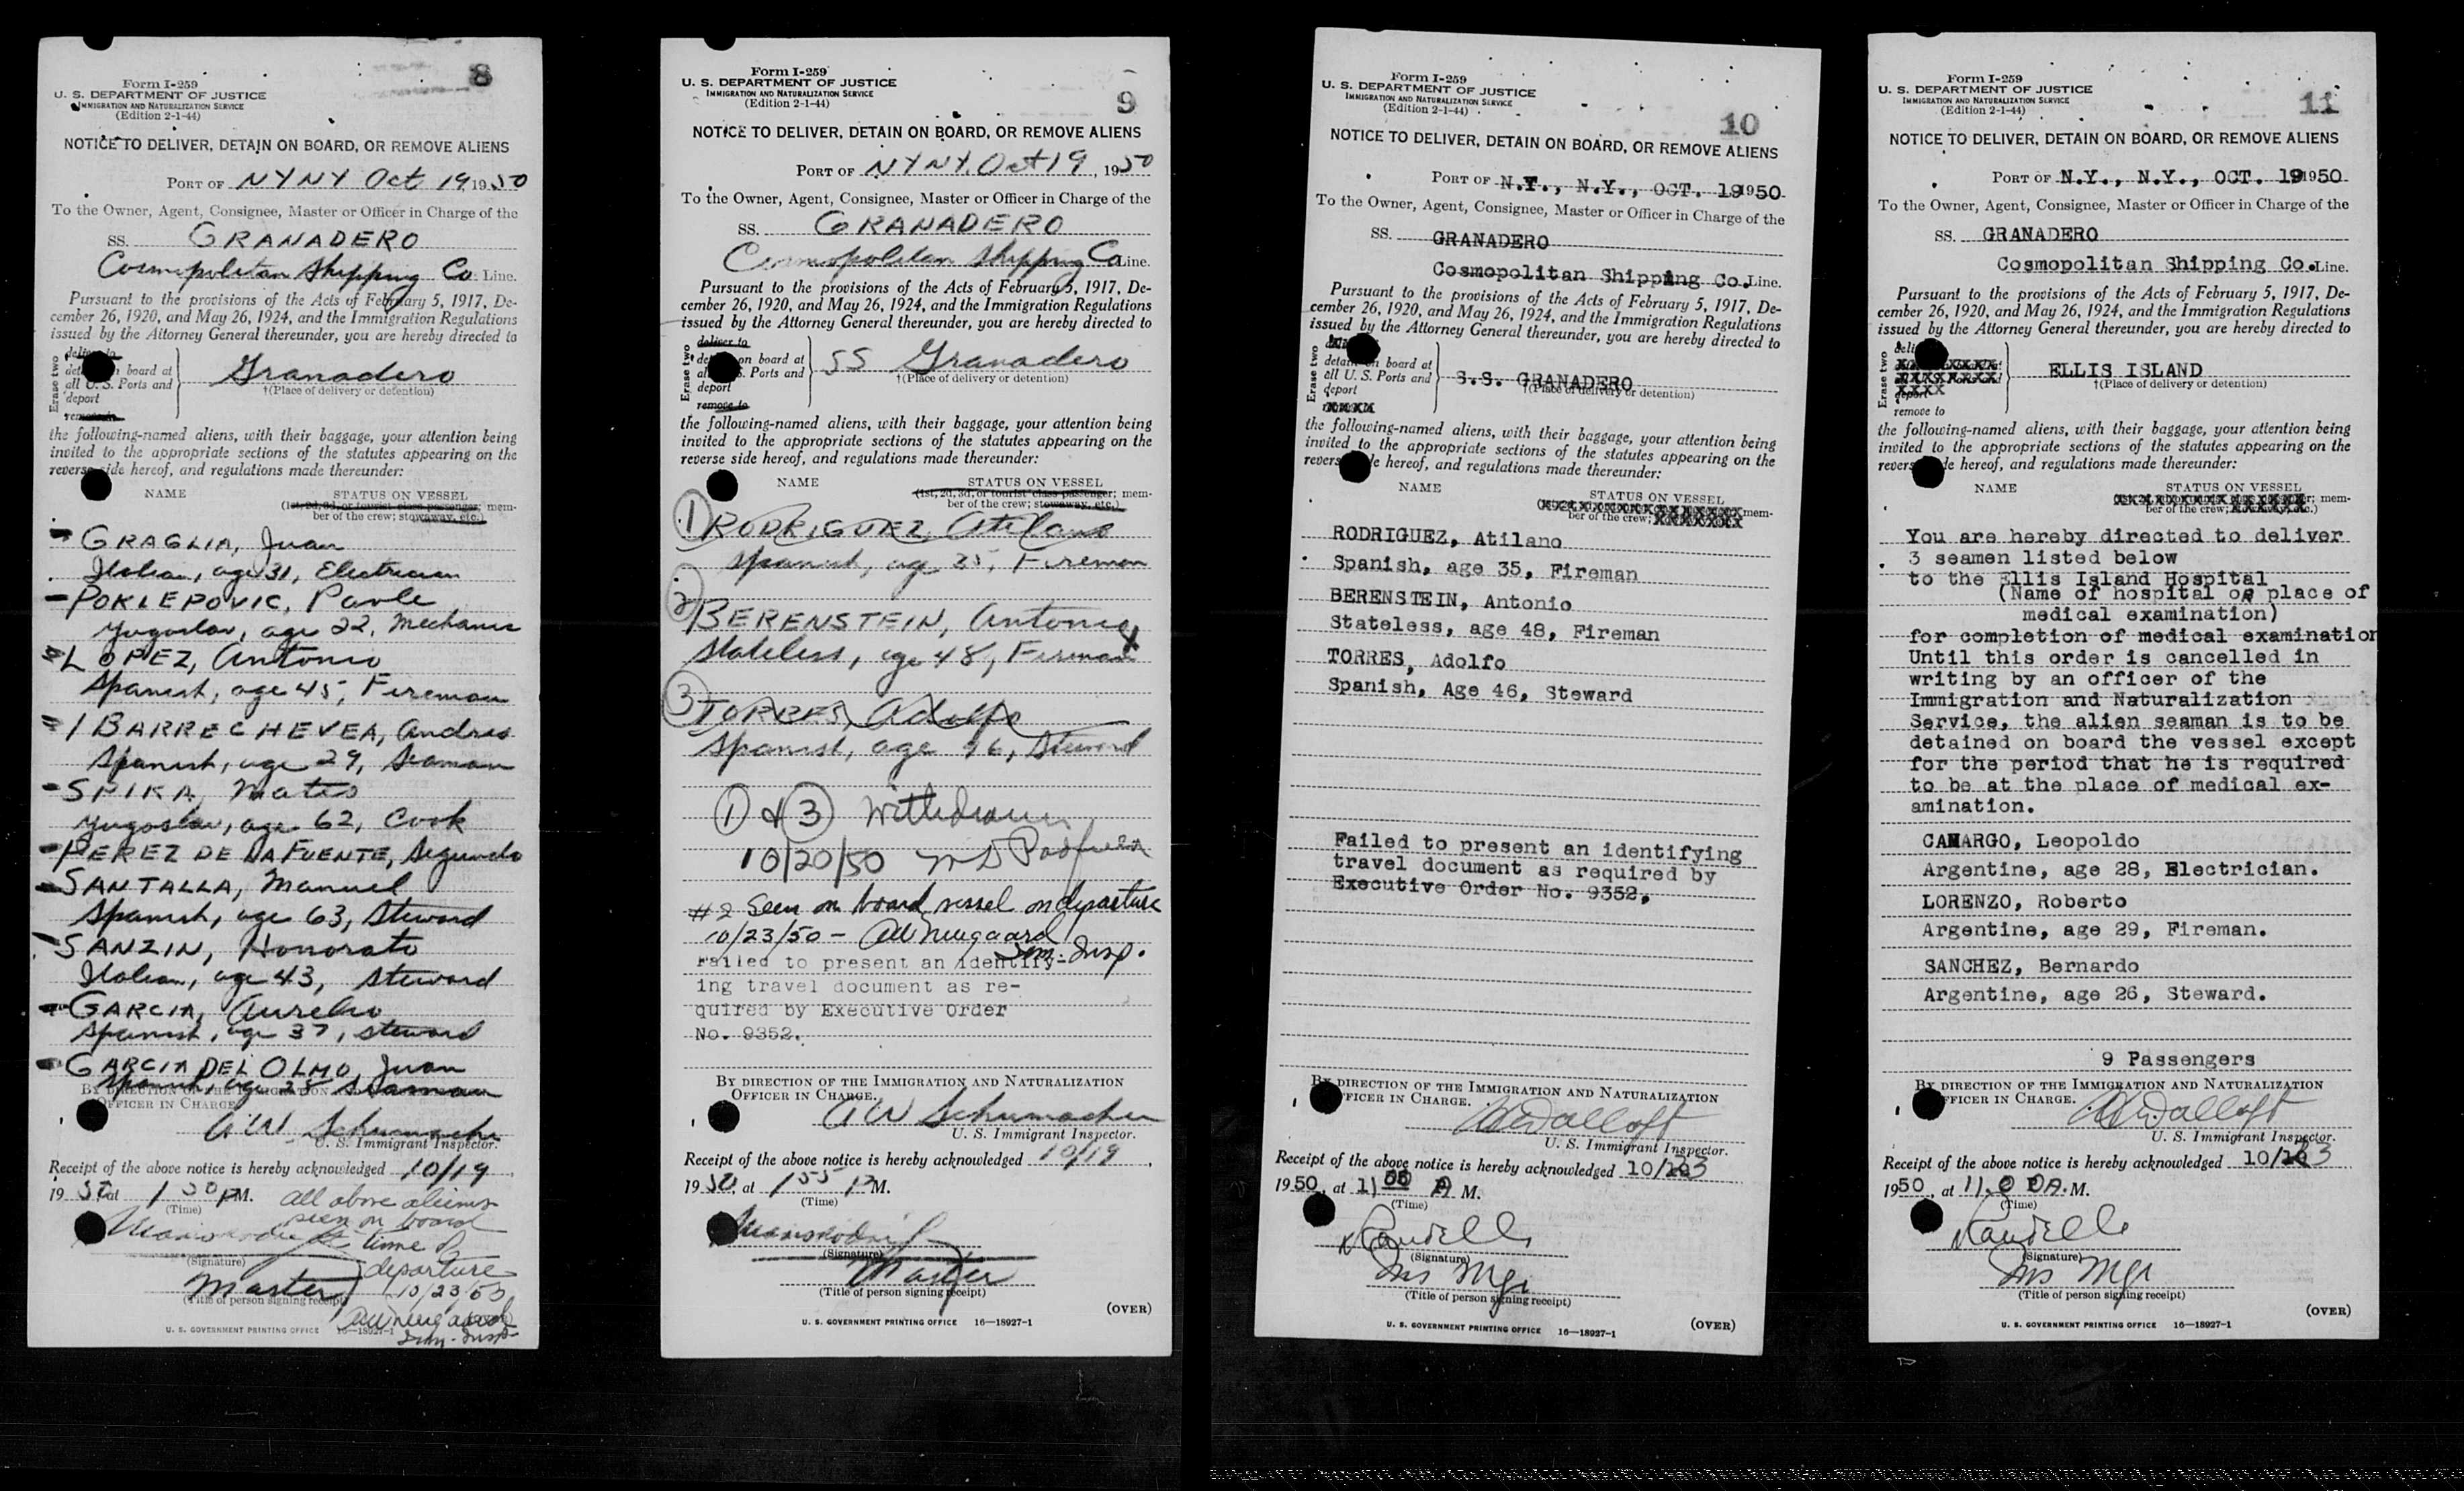 8
Form I-259
U. S. DEPARTMENT OF JUSTICE
IMMIGRATION AND NATURALIZATION SERVICE
(Edition 2-1-44)
NOTICE TO DELIVER, DETAIN ON BOARD, OR REMOVE ALIENS
PORT OF NYNY Oct 19, 1950
To the Owner, Agent, Consignee, Master or Officer in Charge of the
SS. GRANADERO
Cosmopolitan Shipping Co. Line.
Pursuant to the provisions of the Acts of February 5, 1917, De-
cember 26, 1920, and May 26, 1924, and the Immigration Regulations
issued by the Attorney General thereunder, you are hereby directed to
Erase two
deliver to
board at
all U. S. Ports and
deport
remove to
Granadero
†(Place of delivery or detention)
the following-named aliens, with their baggage, your attention being
invited to the appropriate sections of the statutes appearing on the
reverse side hereof, and regulations made thereunder:
NAME STATUS ON VESSEL
(1st, 2d, 3d, or tourist class passenger; mem-
ber of the crew; stowaway, etc.)
GRAGLIA, Juan
Italian, age 31, Electrician
POKLEPOVIC, Pavle
Yugoslav, age 22, Mechanic
LOPEZ, Antonio
Spanish, age 45, Fireman
BARRECHEVEA, Andres
Spanish, age 29, Seaman
SPIKA, Mateo
Yugoslav, age 62, Cook
PEREZ DE LA FUENTE, Segundo
SANTALLA, Manuel
Spanish, age 63, Steward
SANZIN, Honorato
Italian, age 43, Steward
GARCIA, Aurelio
Spanish, age 37, steward
GARCIA DEL OLMO, Juan
Spanish, age 28 Seaman
BY DIRECTION OF THE IMMIGRATION AND NATURALIZATION
OFFICER IN CHARGE.
A W Schumacher
U. S. Immigrant Inspector.
Receipt of the above notice is hereby acknowledged 10/19,
1950, at 1 50 PM. All above aliens
(Time) seen on board
time of
(Signature) departure
Master 10/23/50
(Title of person signing receipt)
AW Neugaard
U. S. GOVERNMENT PRINTING OFFICE 16—18927-1 Imm. Insp.
9
Form I-259
U. S. DEPARTMENT OF JUSTICE
IMMIGRATION AND NATURALIZATION SERVICE
(Edition 2-1-44)
NOTICE TO DELIVER, DETAIN ON BOARD, OR REMOVE ALIENS
PORT OF NYNY. Oct 19, 1950
To the Owner, Agent, Consignee, Master or Officer in Charge of the
SS. GRANADERO
Cosmopolitan Shipping Co Line.
Pursuant to the provisions of the Acts of February 5, 1917, De-
cember 26, 1920, and May 26, 1924, and the Immigration Regulations
issued by the Attorney General thereunder, you are hereby directed to
Erase two
deliver to
on board at
all U. S. Ports and
deport
remove to
SS Granadero
†(Place of delivery or detention)
the following-named aliens, with their baggage, your attention being
invited to the appropriate sections of the statutes appearing on the
reverse side hereof, and regulations made thereunder:
NAME STATUS ON VESSEL
(1st, 2d, 3d, or tourist class passenger; mem-
ber of the crew; stowaway, etc.)
1 RODRIGUEZ, Atilano
Spanish, age 35, Fireman
2 BERENSTEIN, Antonio
Stateless, age 48, Fireman X
3 TORRES, Adolfo
Spanish, age 46, Steward
1 & 3 Withdrawn
10/20/50
#2 Seen on board vessel on departure
10/23/50 - AW Neugaard
Imm. Insp.
Failed to present an identify-
ing travel document as re-
quired by Executive Order
No. 9352.
BY DIRECTION OF THE IMMIGRATION AND NATURALIZATION
OFFICER IN CHARGE.
A W Schumacher
U. S. Immigrant Inspector.
Receipt of the above notice is hereby acknowledged 10/19,
1950, at 1 55 PM.
(Time)
(Signature)
Master
(Title of person signing receipt)
(OVER)
U. S. GOVERNMENT PRINTING OFFICE 16—18927-1
10
Form I-259
U. S. DEPARTMENT OF JUSTICE
IMMIGRATION AND NATURALIZATION SERVICE
(Edition 2-1-44)
NOTICE TO DELIVER, DETAIN ON BOARD, OR REMOVE ALIENS
PORT OF N.Y., N.Y., OCT. 19 1950
To the Owner, Agent, Consignee, Master or Officer in Charge of the
SS. GRANADERO
Cosmopolitan Shipping Co. Line.
Pursuant to the provisions of the Acts of February 5, 1917, De-
cember 26, 1920, and May 26, 1924, and the Immigration Regulations
issued by the Attorney General thereunder, you are hereby directed to
Erase two
detain on board at
all U. S. Ports and
deport
XXXX
S.S. GRANADERO
†(Place of delivery or detention)
the following-named aliens, with their baggage, your attention being
invited to the appropriate sections of the statutes appearing on the
reverse side hereof, and regulations made thereunder:
NAME STATUS ON VESSEL
mem-
ber of the crew; XXXXXXXX
RODRIGUEZ, Atilano
Spanish, age 35, Fireman
BERENSTEIN, Antonio
Stateless, age 48, Fireman
TORRES, Adolfo
Spanish, Age 46, Steward
Failed to present an identifying
travel document as required by
Executive Order No. 9352.
BY DIRECTION OF THE IMMIGRATION AND NATURALIZATION
OFFICER IN CHARGE.
U. S. Immigrant Inspector.
Receipt of the above notice is hereby acknowledged 10/23
1950, at 11 00 A M.
(Time)
(Signature)
Ins Mgr
(Title of person signing receipt)
(OVER)
U. S. GOVERNMENT PRINTING OFFICE 16—18927-1
11
Form I-259
U. S. DEPARTMENT OF JUSTICE
IMMIGRATION AND NATURALIZATION SERVICE
(Edition 2-1-44)
NOTICE TO DELIVER, DETAIN ON BOARD, OR REMOVE ALIENS
PORT OF N.Y., N.Y., OCT. 19 1950
To the Owner, Agent, Consignee, Master or Officer in Charge of the
SS. GRANADERO
Cosmopolitan Shipping Co. Line.
Pursuant to the provisions of the Acts of February 5, 1917, De-
cember 26, 1920, and May 26, 1924, and the Immigration Regulations
issued by the Attorney General thereunder, you are hereby directed to
Erase two
deport
remove to
ELLIS ISLAND
†(Place of delivery or detention)
the following-named aliens, with their baggage, your attention being
invited to the appropriate sections of the statutes appearing on the
reverse side hereof, and regulations made thereunder:
NAME STATUS ON VESSEL
mem-
ber of the crew; etc.)
You are hereby directed to deliver
3 seamen listed below
to the Ellis Island Hospital
(Name of hospital or place of
medical examination)
for completion of medical examination
Until this order is cancelled in
writing by an officer of the
Immigration and Naturalization
Service, the alien seaman is to be
detained on board the vessel except
for the period that he is required
to be at the place of medical ex-
amination.
CAMARGO, Leopoldo
Argentine, age 28, Electrician.
LORENZO, Roberto
Argentine, age 29, Fireman.
SANCHEZ, Bernardo
Argentine, age 26, Steward.
9 Passengers
BY DIRECTION OF THE IMMIGRATION AND NATURALIZATION
OFFICER IN CHARGE.
U. S. Immigrant Inspector.
Receipt of the above notice is hereby acknowledged 10/23
1950, at 11.00 A.M.
(Time)
(Signature)
Ins Mgr
(Title of person signing receipt)
(OVER)
U. S. GOVERNMENT PRINTING OFFICE 16—18927-1